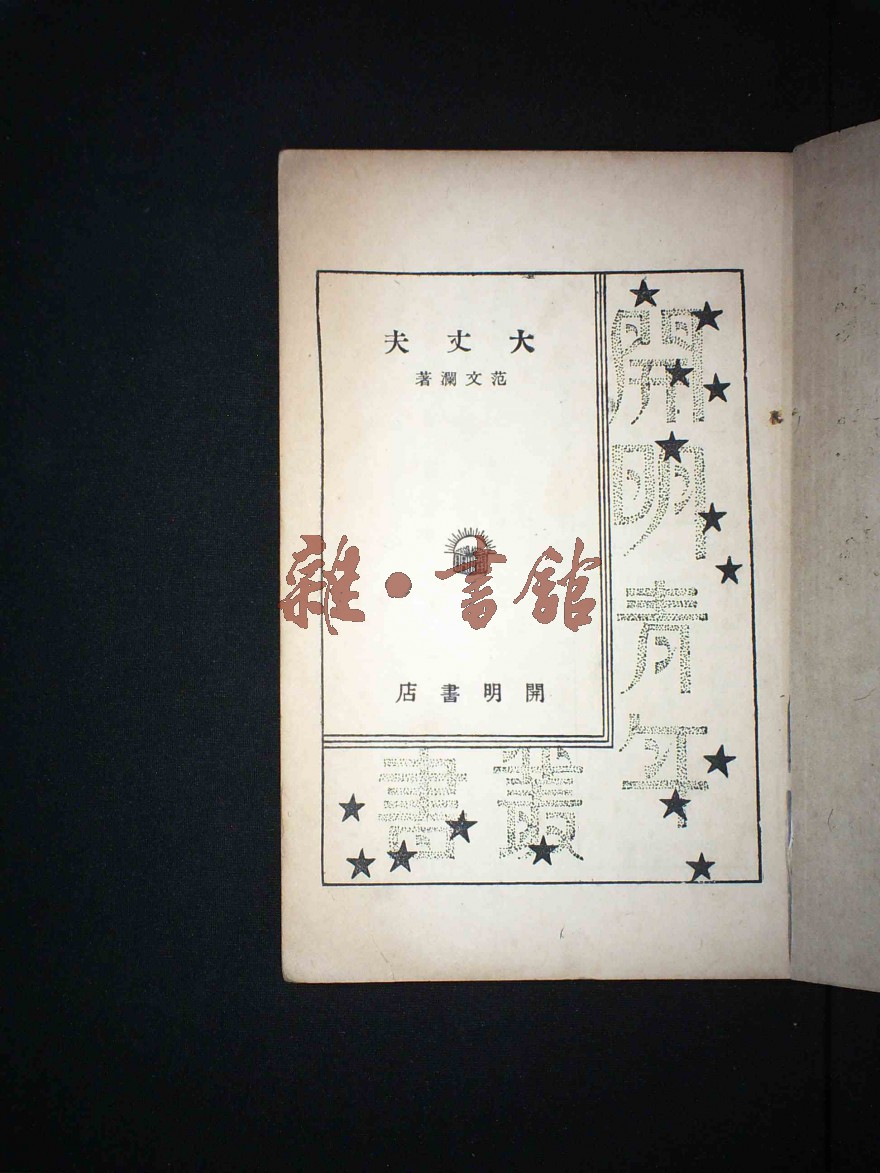 大丈夫
范文瀾著
開明書店
開明青年
叢書
雜·書館